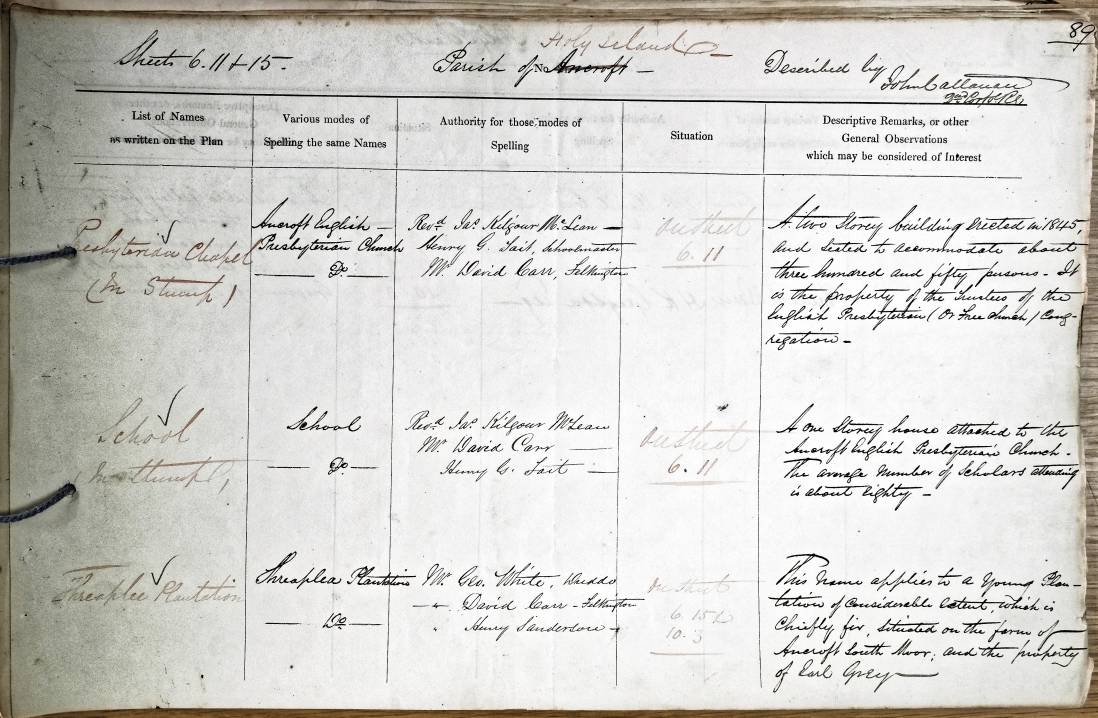 89
Holy Island
Sheets 6. 11 & 15.
Parish of No Ancroft
Described by
John Callanan
2nd Corpl R.E.
List of Names
as written on the Plan
Various modes of
Spelling the same Names
Authority for those modes of
Spelling
Situation
Descriptive Remarks, or other
General Observations
which may be considered of Interest
Presbyterian Chapel
(In Stump)
Ancroft English
Presbyterian Church
Do
Revd Jas Kilgour McLean
Henry G. Tait, Schoolmaster
Mr David Carr, Felkington
On sheet
6. 11
A two Storey building erected in 1845,
and seated to accommodate about
three hundred and fifty persons - It
is the property of the Trustees of the
English Presbyterian (Or Free Church) Cong-
regation -
School
School
Do
Revd Jas Kilgour McLean
Mr David Carr
Henry G. Tait
On sheet
6. 11
A one Storey house attached to the
Ancroft English Presbyterian Church -
The average Number of Scholars attending
is about Eighty -
Threaplee Plantation
Threaplea Plantation
Do
Mr Geo. White, Duddo
" David Carr - Felkington
" Henry Sanderson
On sheet
6 15
10. 3
This name applies to a Young Plan-
tation of Considerable extent, which is
Chiefly fir, situated on the farm of
Ancroft South Moor; and the property
of Earl Grey